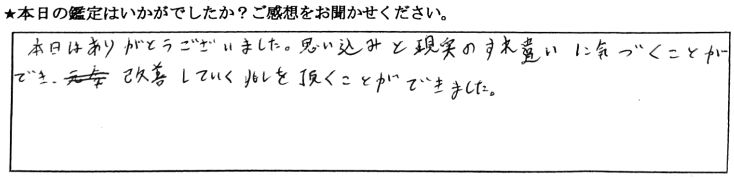 ★本日の鑑定はいかがでしたか？ご感想をお聞かせください。
本日はありがとうございました。思い込みと現実のすれ違いに気づくことが
でき、改善していく兆しを頂くことができました。